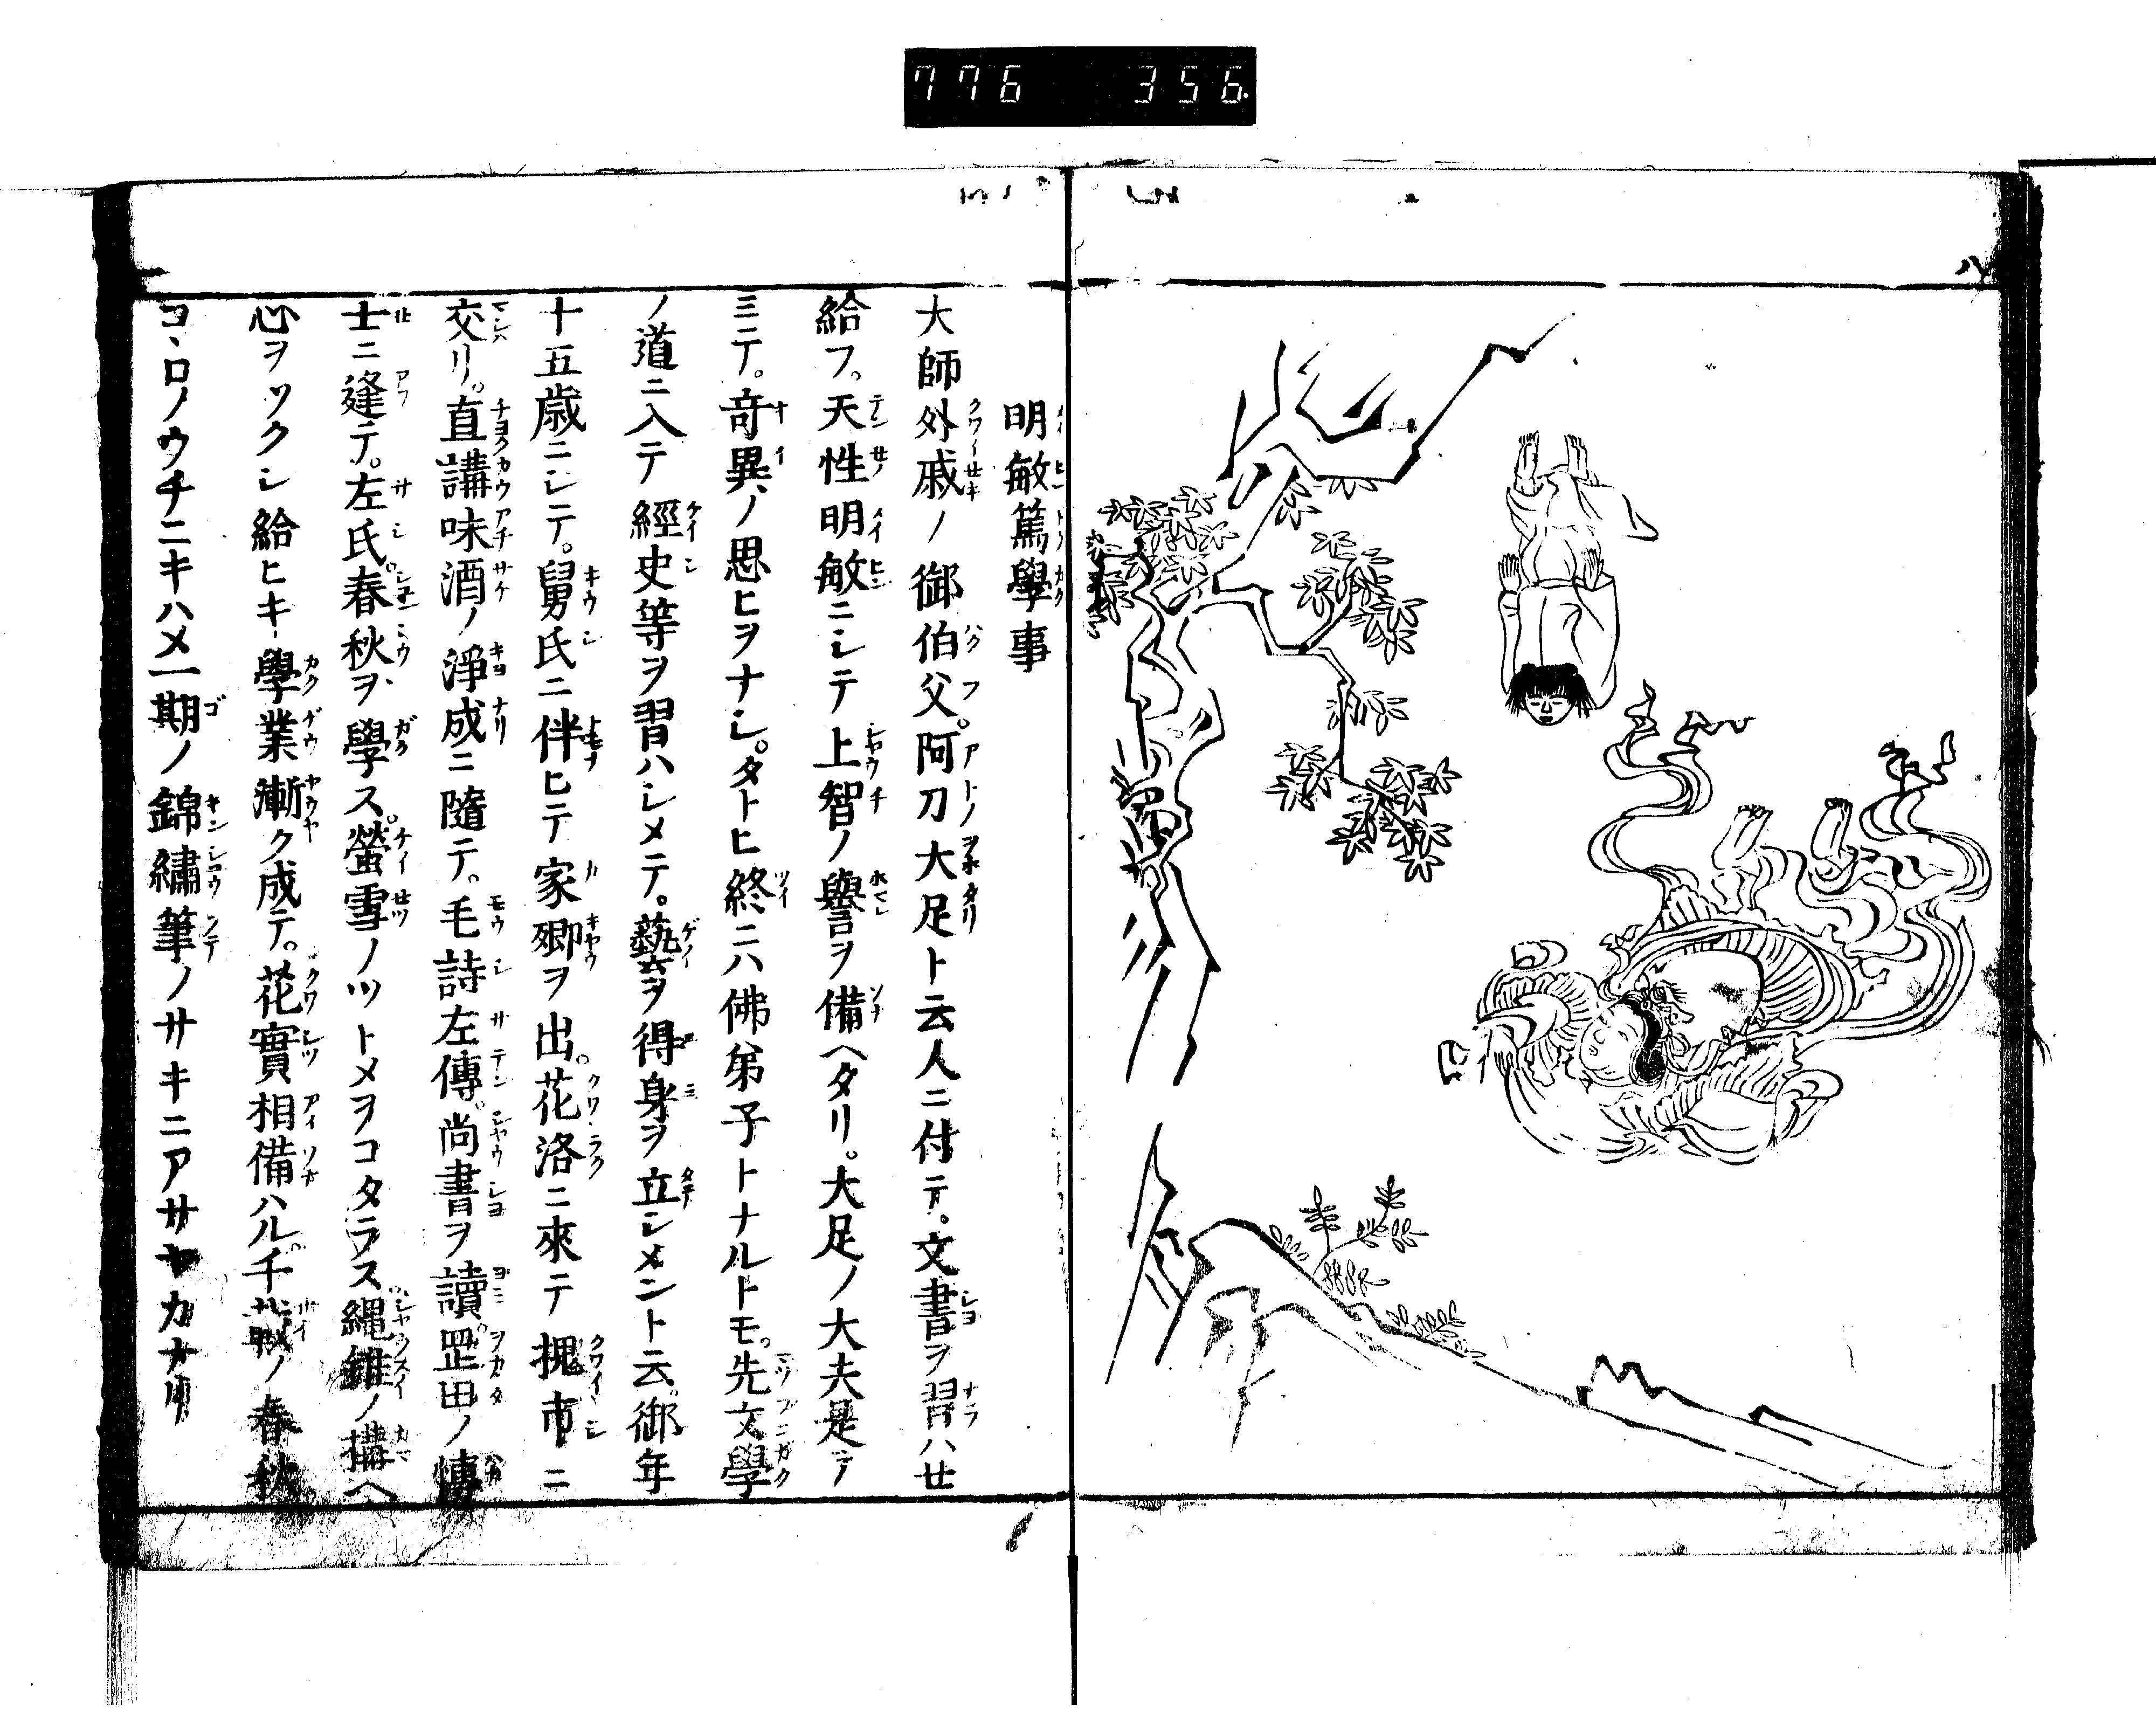 776 356
八
明敏篤學事
大師外戚ノ御伯父。阿刀大足ト云人ニ付テ。文書ヲ習ハせ
給フ。天性明敏ニシテ上智ノ譽ヲ備ヘタリ。大足ノ大夫是ヲ
ミテ。奇異ノ思ヒヲナシ。タトヒ終ニハ佛弟子トナルトモ。先文學
ノ道ニ入テ經史等ヲ習ハシメテ。藝ヲ得身ヲ立シメント云。御年
十五歳ニシテ。舅氏ニ伴ヒテ家郷ヲ出。花洛ニ來テ槐市ニ
交リ。直講味酒ノ淨成ニ隨テ。毛詩左傳。尚書ヲ讀。罡田ノ博
士ニ逢テ。左氏春秋ヲ學ス。螢雪ノツトメヲコタラス縄錐ノ構ヘ
心ヲツクシ給ヒキ學業漸ク成テ。花實相備ハル。千載ノ春秋
コヽロノウチニキハメ一期ノ錦繡筆ノサキニアサヤカナリ